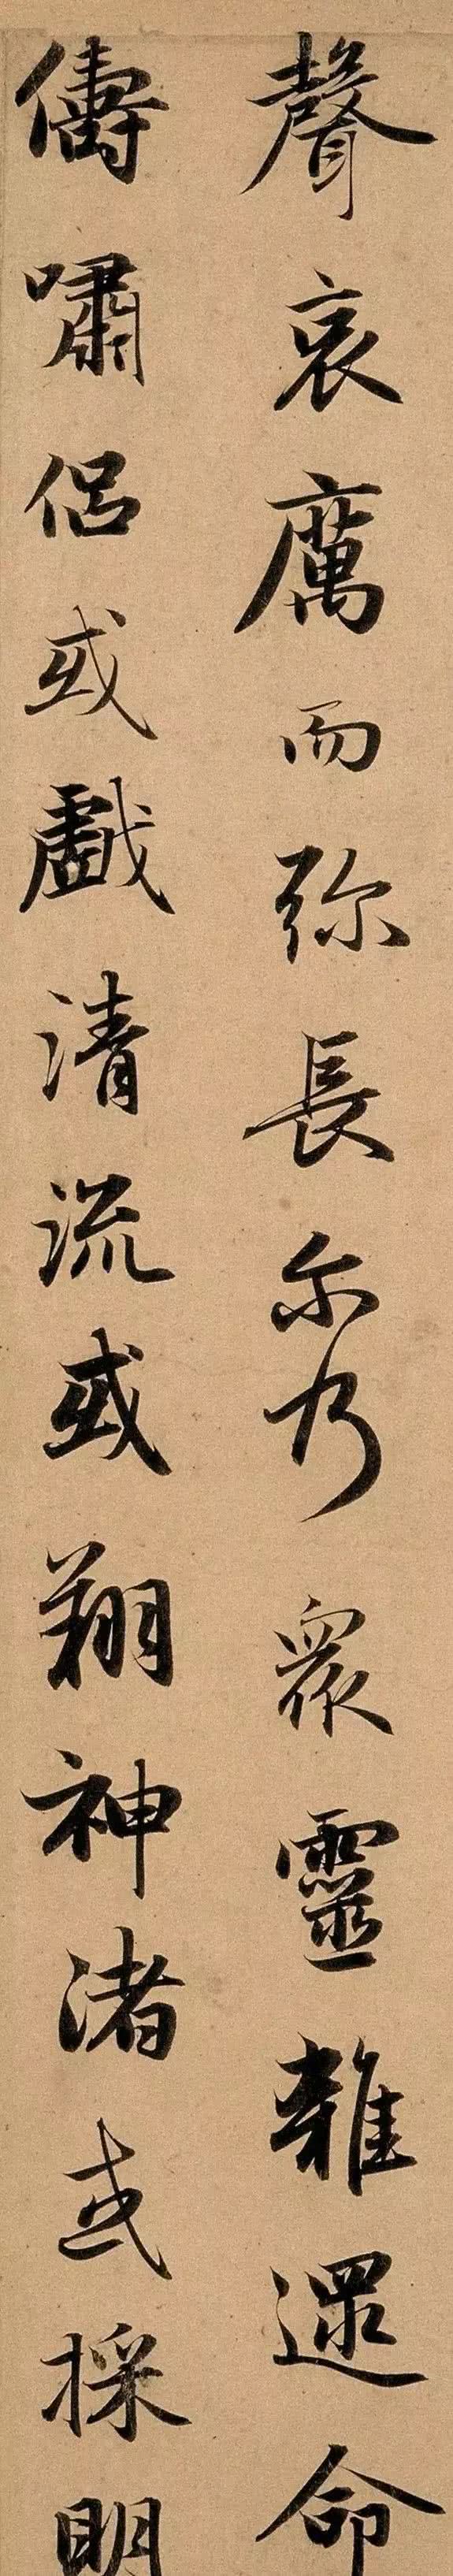 聲哀厲而弥長尔乃眾靈雜遝命
儔嘯侶或戲清流或翔神渚或採明